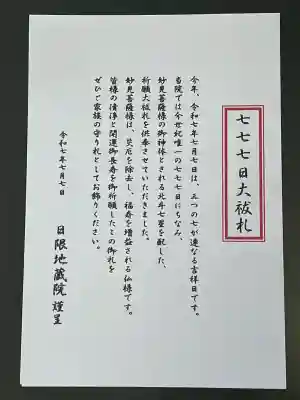 七七七日大祓札
今年、令和七年七月七日は、三つの七が連なる吉祥日です。
当院では今世紀唯一の七七七日にちなみ、
妙見菩薩様の御神体とされる北斗七星を配した、
祈願大祓札を供奉させていただきました。
妙見菩薩様は、災厄を除去し、福寿を増益される仏様です。
皆様の清浄と開運御長寿を御祈願したこの御札を
ぜひご家護の守り札としてお飾りください。
令和七年七月七日
日限地蔵院 謹呈